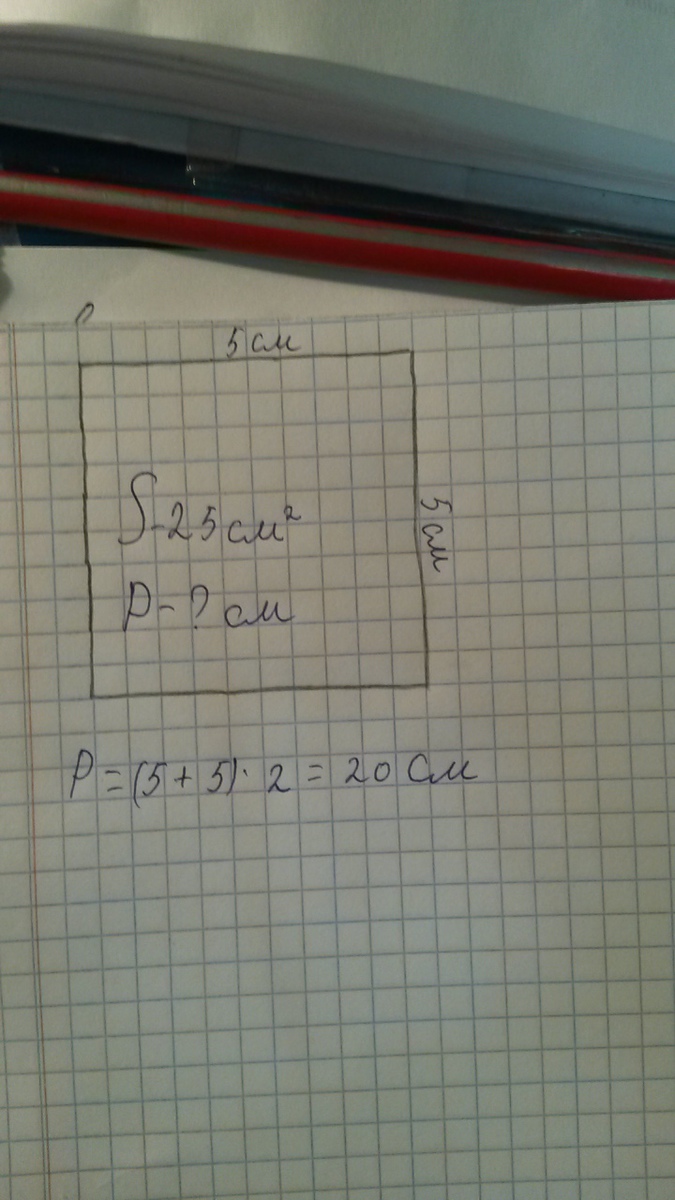 5 см
S-25 см²
5 см
P-? см
P = (5 + 5) · 2 = 20 см